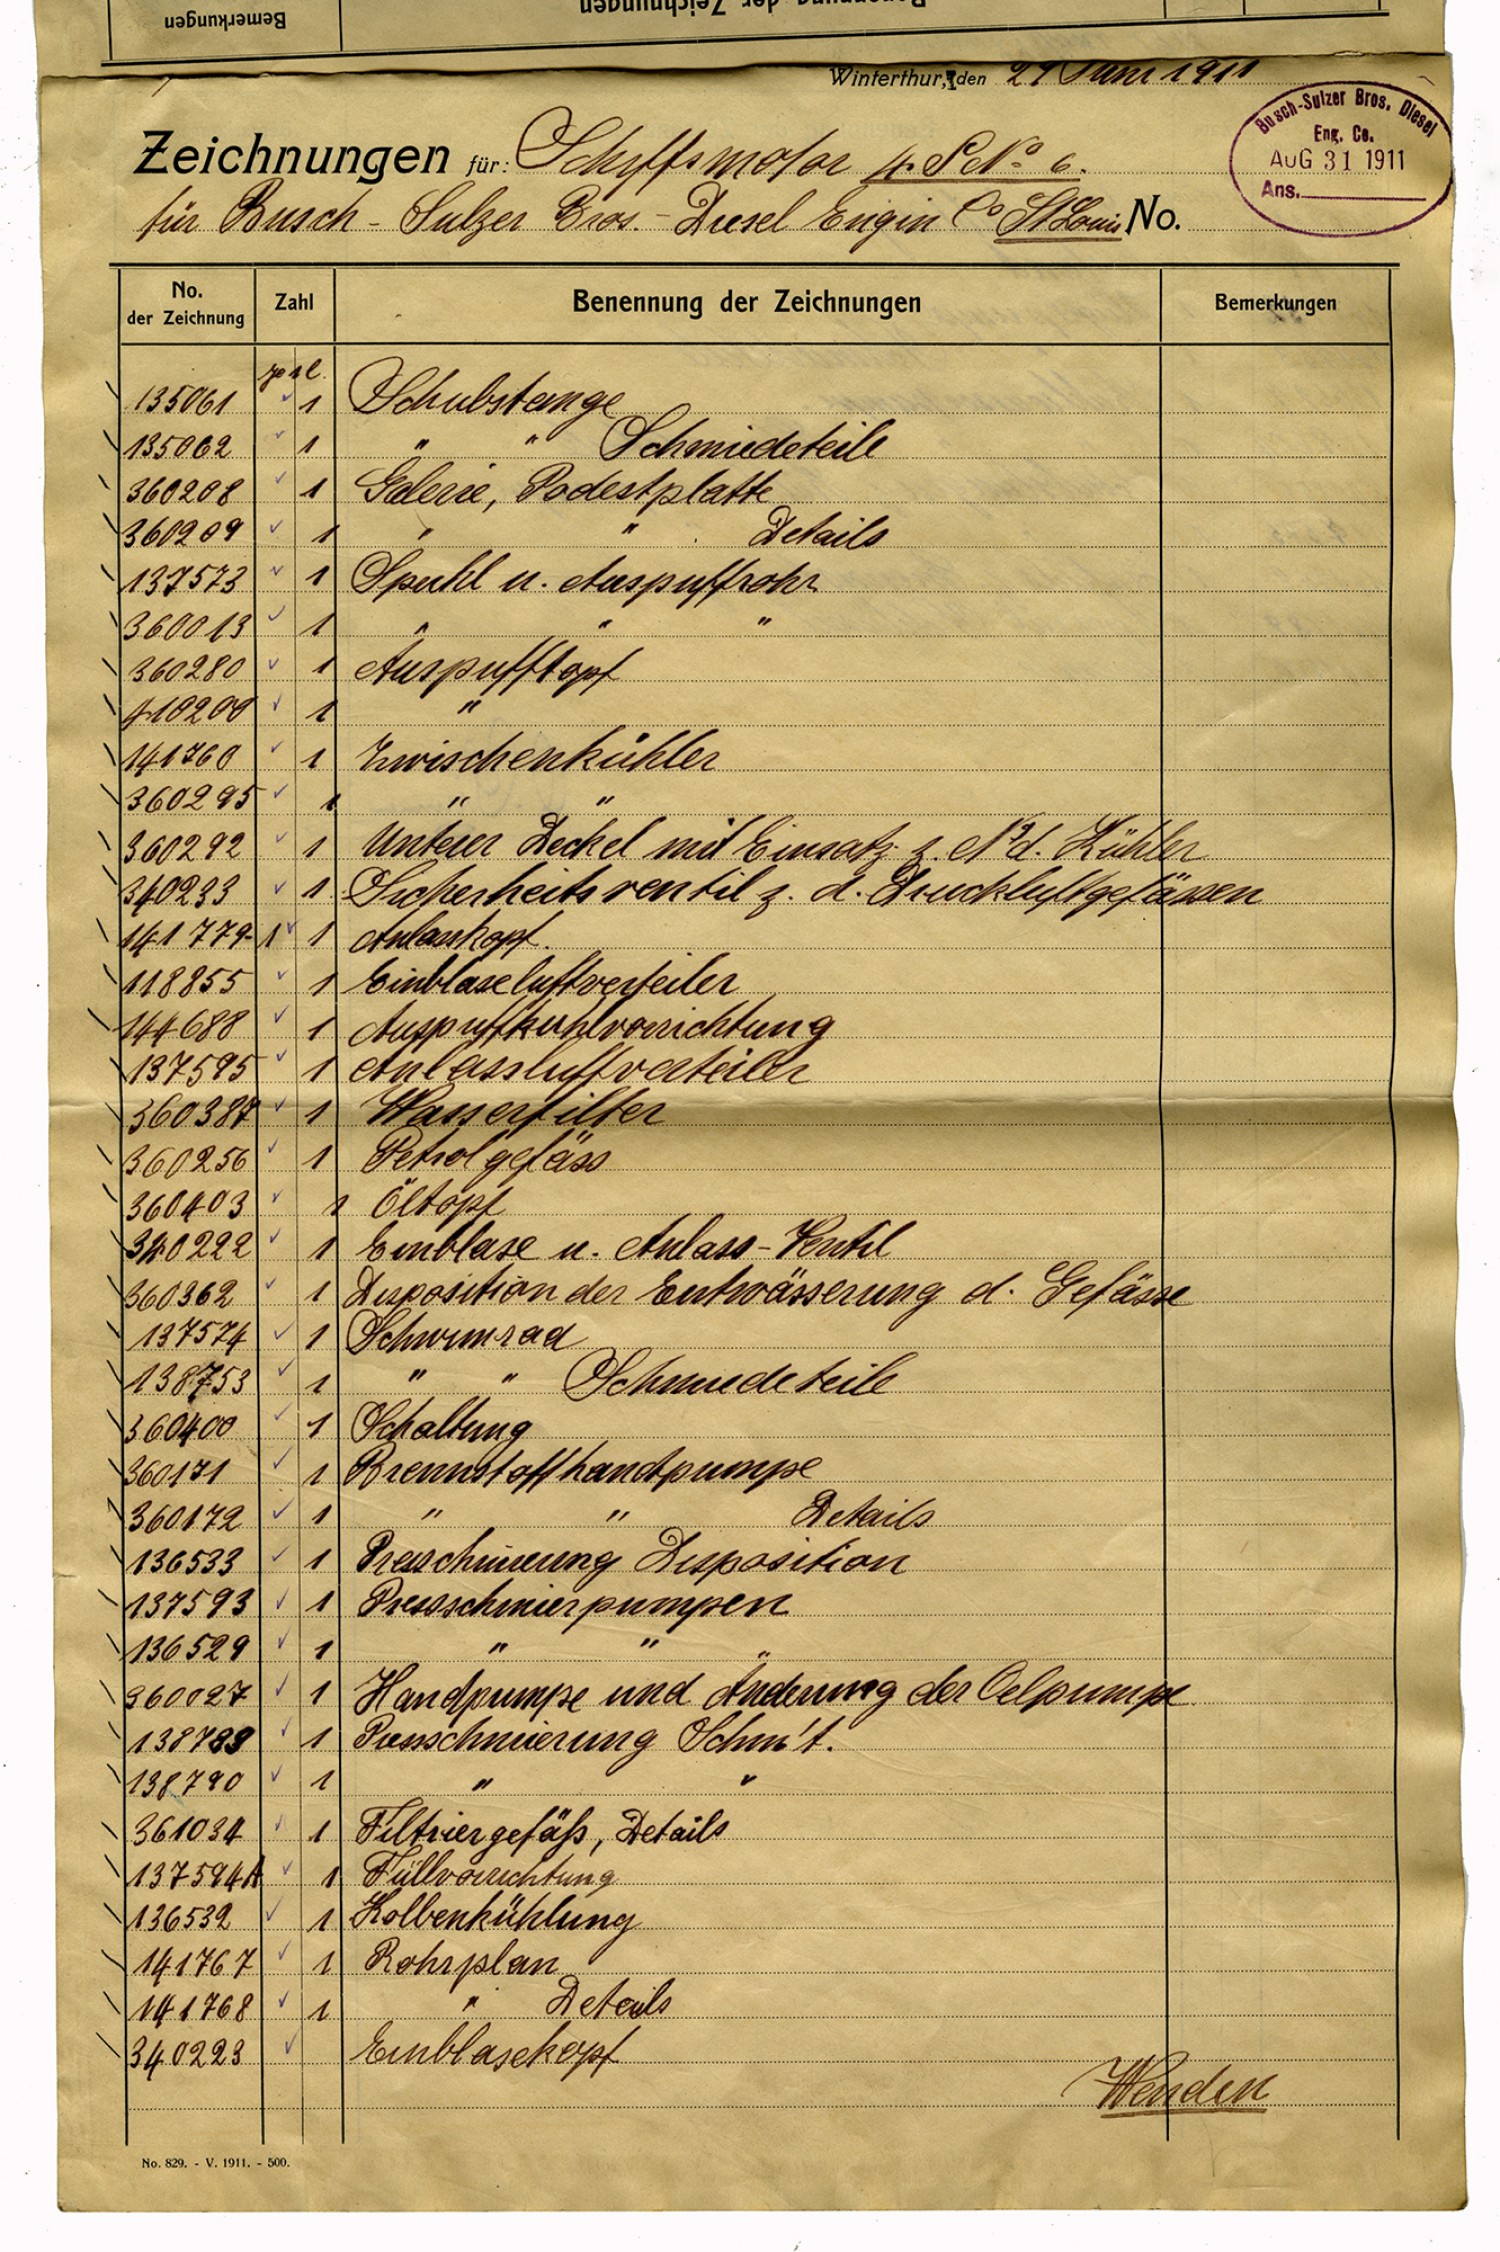 Bemerkungen
Benennung der Zeichnungen
Winterthur, den 29 Juni 1911
Busch-Sulzer Bros. Diesel
Eng. Co.
AUG 31 1911
Ans.
Zeichnungen für: Schiffsmotor 4. S No. 6.
für Busch - Sulzer Bros. - Diesel Engin Co St Louis No.
No. der Zeichnung Zahl Benennung der Zeichnungen Bemerkungen
135061 1 Schubstange
135062 1 " " Schmiedeteile
360208 1 Galerie, Podestplatte
360209 1 " " Details
137573 1 Spühl u. Auspuffrohr
360013 1 " " "
360280 1 Auspufftopf
410200 1 "
141760 1 Zwischenkühler
360295 1 " "
360292 1 Unterer Deckel mit Einsatz z. Nd. Kühler
340233 1 Sicherheitsventil z. d. Druckluftgefässen
141779 1 1 Anlasskopf.
118855 1 Einblaseluftverteiler
144688 1 Auspuffkühlvorrichtung
137595 1 Anlassluftverteiler
360387 1 Wasserfilter
360256 1 Petrolgefäss
360403 1 Öltopf
340222 1 Einblase u. Anlass-Ventil
360362 1 Disposition der Entwässerung d. Gefässe
137574 1 Schwunrad
138753 1 " " Schmiedeteile
360400 1 Schaltung
360171 1 Brennstoffhandpumpe
360172 1 " " Details
136533 1 Pressschmierung Disposition
137593 1 Pressschmierpumpen
136529 1 " " "
360027 1 Handpumpe und Änderung der Oelpumpe
138789 1 Pressschmierung Schm't.
138790 1 " "
361034 1 Filtriergefäß, Details
137594A 1 Füllvorrichtung
136532 1 Kolbenkühlung
141767 1 Rohrplan
141768 1 " Details
340223 Einblasekopf
Wenden
No. 829. - V. 1911. - 500.